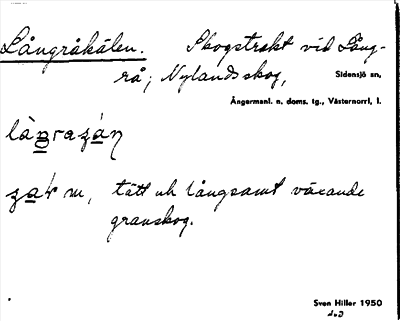 Långråkälen. Skogstrakt vid Lång-
rå, Nylandsskog, Sidensjö sn,
Ångermanl. n. doms. tg., Västernorrl. l.
m, tätt och långsamt växande
granskog.
Sven Hiller 1950